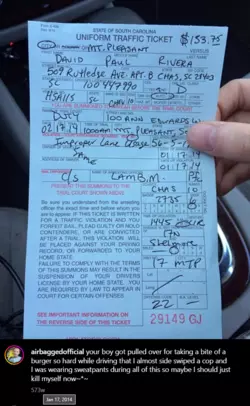 STATE OF SOUTH CAROLINA
UNIFORM TRAFFIC TICKET
$153.75
MT. PLEASANT
VERSUS
DAVID PAUL RIVERA
509 Rutledge Ave. Apt. B CHAS, SC
SC 100447790 D
YOU ARE SUMMONED TO APPEAR BEFORE THE TRIAL COURT
100 ANN EDWARDS
02.17.14 1000am MT. PLEASANT, SC
Improper Lane Usage 56-5-
SAME
01 17 14
C/S LAMB, M
PRESENT THIS SUMMONS TO THE
TRIAL COURT SHOWN ABOVE
Be sure you understand from the arresting
officer the exact time and before whom you
are to appear. IF THIS TICKET IS WRITTEN
FOR A TRAFFIC VIOLATION AND YOU
FORFEIT BAIL, PLEAD GUILTY OR NOLO
CONTENDERE, OR ARE CONVICTED
AFTER A TRIAL, THIS VIOLATION WILL
BE PLACED AGAINST YOUR DRIVING
RECORD, OR FORWARDED TO YOUR
HOME STATE.
FAILURE TO COMPLY WITH THE TERMS
OF THIS SUMMONS MAY RESULT IN THE
SUSPENSION OF YOUR DRIVERS
LICENSE BY YOUR HOME STATE. YOU
ARE REQUIRED BY LAW TO APPEAR IN
COURT FOR CERTAIN OFFENSES
CHAS 10
2735
17 MTP
22
SEE IMPORTANT INFORMATION ON
THE REVERSE SIDE OF THIS TICKET
29149 GJ
airbaggedofficial your boy got pulled over for taking a bite of a
burger so hard while driving that I almost side swiped a cop and
I was wearing sweatpants during all of this so maybe I should just
kill myself now~*~
573w
Jan 17, 2014